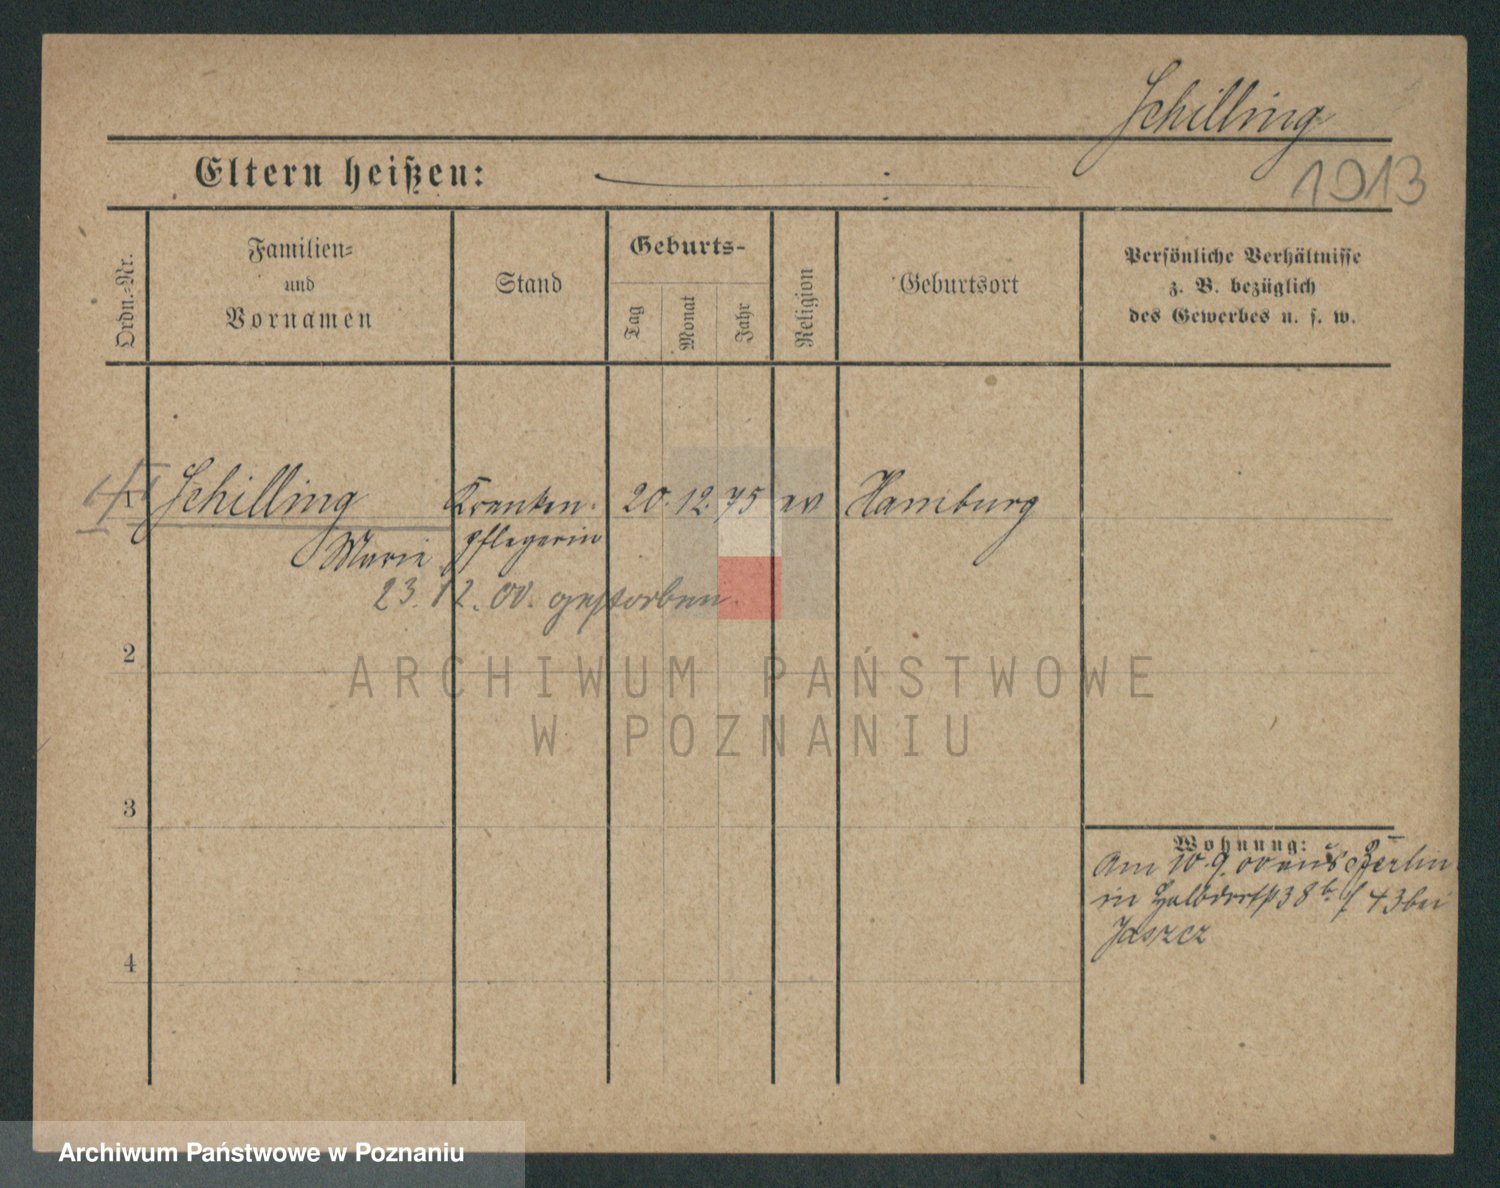 Schilling
1913
Eltern heißen:
Ordn.-Nr.
Familien-
und
Vornamen
Stand
Geburts-
Tag
Monat
Jahr
Religion
Geburtsort
Persönliche Verhältnisse
z. B. bezüglich
des Gewerbes u. s. w.
Schilling Kranken- 20. 12. 75 ev Hamburg
Marie pflegerin
23. 12. 00. gestorben.
2
ARCHIWUM PAŃSTWOWE
W POZNANIU
3
Wohnung:
Am 10. 9. 00 aus Berlin
in Halbdorfst 38 b. 43 bei
Jaszcz
4
Archiwum Państwowe w Poznaniu